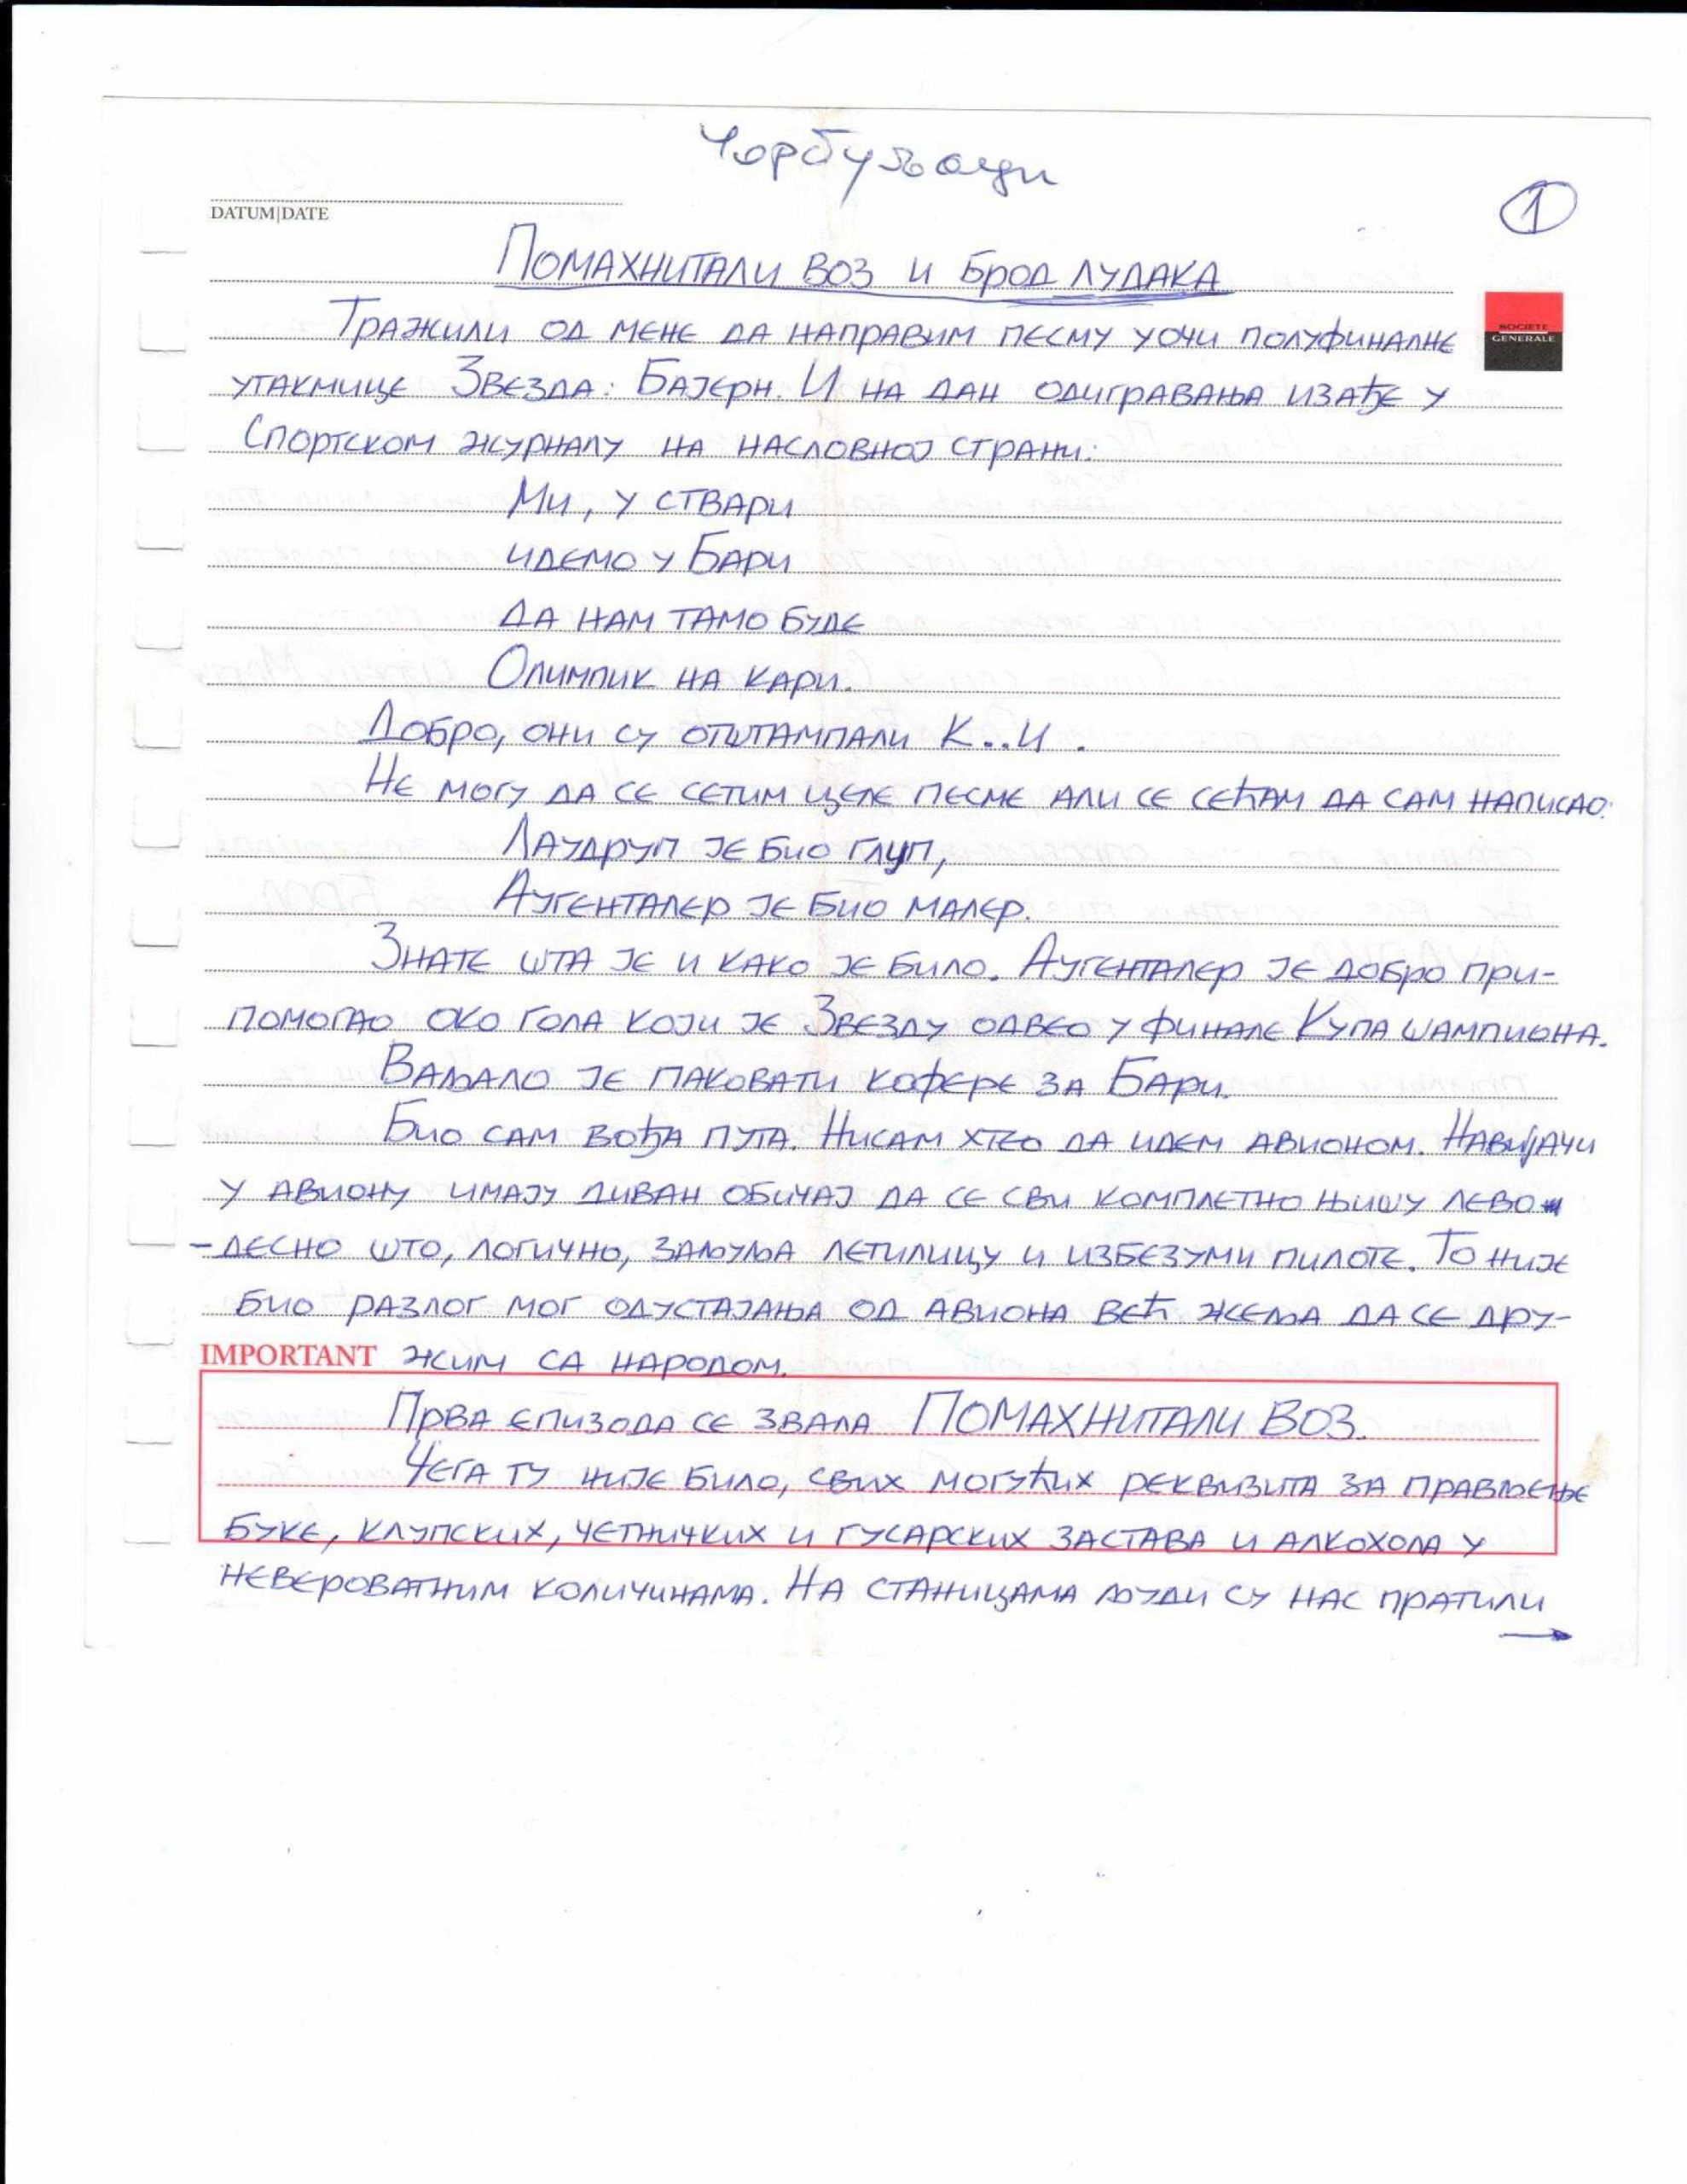 Чорбуљаци
DATUM|DATE
1
ПОМАХНИТАЛИ ВОЗ И БРОД ЛУДАКА
ТРАЖИЛИ ОД МЕНЕ ДА НАПРАВИМ ПЕСМУ УОЧИ ПОЛУФИНАЛНЕ
SOCIETE
GENERALE
УТАКМИЦЕ ЗВЕЗДА: БАЈЕРН. И НА ДАН ОДИГРАВАЊА ИЗАЂЕ У
СПОРТСКОМ ЖУРНАЛУ НА НАСЛОВНОЈ СТРАНИ:
МИ, У СТВАРИ
ИДЕМО У БАРИ
ДА НАМ ТАМО БУДЕ
ОЛИМПИК НА КАРИ.
ДОБРО, ОНИ СУ ОТШТАМПАЛИ К..И.
НЕ МОГУ ДА СЕ СЕТИМ ЦЕЛЕ ПЕСМЕ АЛИ СЕ СЕЋАМ ДА САМ НАПИСАО:
ЛАУДРУП ЈЕ БИО ГЛУП,
АУГЕНТАЛЕР ЈЕ БИО МАЛЕР.
ЗНАТЕ ШТА ЈЕ И КАКО ЈЕ БИЛО. АУГЕНТАЛЕР ЈЕ ДОБРО ПРИ-
ПОМОГАО ОКО ГОЛА КОЈИ ЈЕ ЗВЕЗДУ ОДВЕО У ФИНАЛЕ КУПА ШАМПИОНА.
ВАЉАЛО ЈЕ ПАКОВАТИ КОФЕРЕ ЗА БАРИ.
БИО САМ ВОЂА ПУТА. НИСАМ ХТЕО ДА ИДЕМ АВИОНОМ. НАВИЈАЧИ
У АВИОНУ ИМАЈУ ДИВАН ОБИЧАЈ ДА СЕ СВИ КОМПЛЕТНО ЊИШУ ЛЕВО
-ДЕСНО ШТО, ЛОГИЧНО, ЗАЉУЉА ЛЕТИЛИЦУ И ИЗБЕЗУМИ ПИЛОТЕ. ТО НИЈЕ
БИО РАЗЛОГ МОГ ОДУСТАЈАЊА ОД АВИОНА ВЕЋ ЖЕЉА ДА СЕ ДРУ-
IMPORTANT ЖИМ СА НАРОДОМ.
ПРВА ЕПИЗОДА СЕ ЗВАЛА ПОМАХНИТАЛИ ВОЗ.
ЧЕГА ТУ НИЈЕ БИЛО, СВИХ МОГУЋИХ РЕКВИЗИТА ЗА ПРАВЉЕЊЕ
БУКЕ, КЛУПСКИХ, ЧЕТНИЧКИХ И ГУСАРСКИХ ЗАСТАВА И АЛКОХОЛА У
НЕВЕРОВАТНИМ КОЛИЧИНАМА. НА СТАНИЦАМА ЉУДИ СУ НАС ПРАТИЛИ